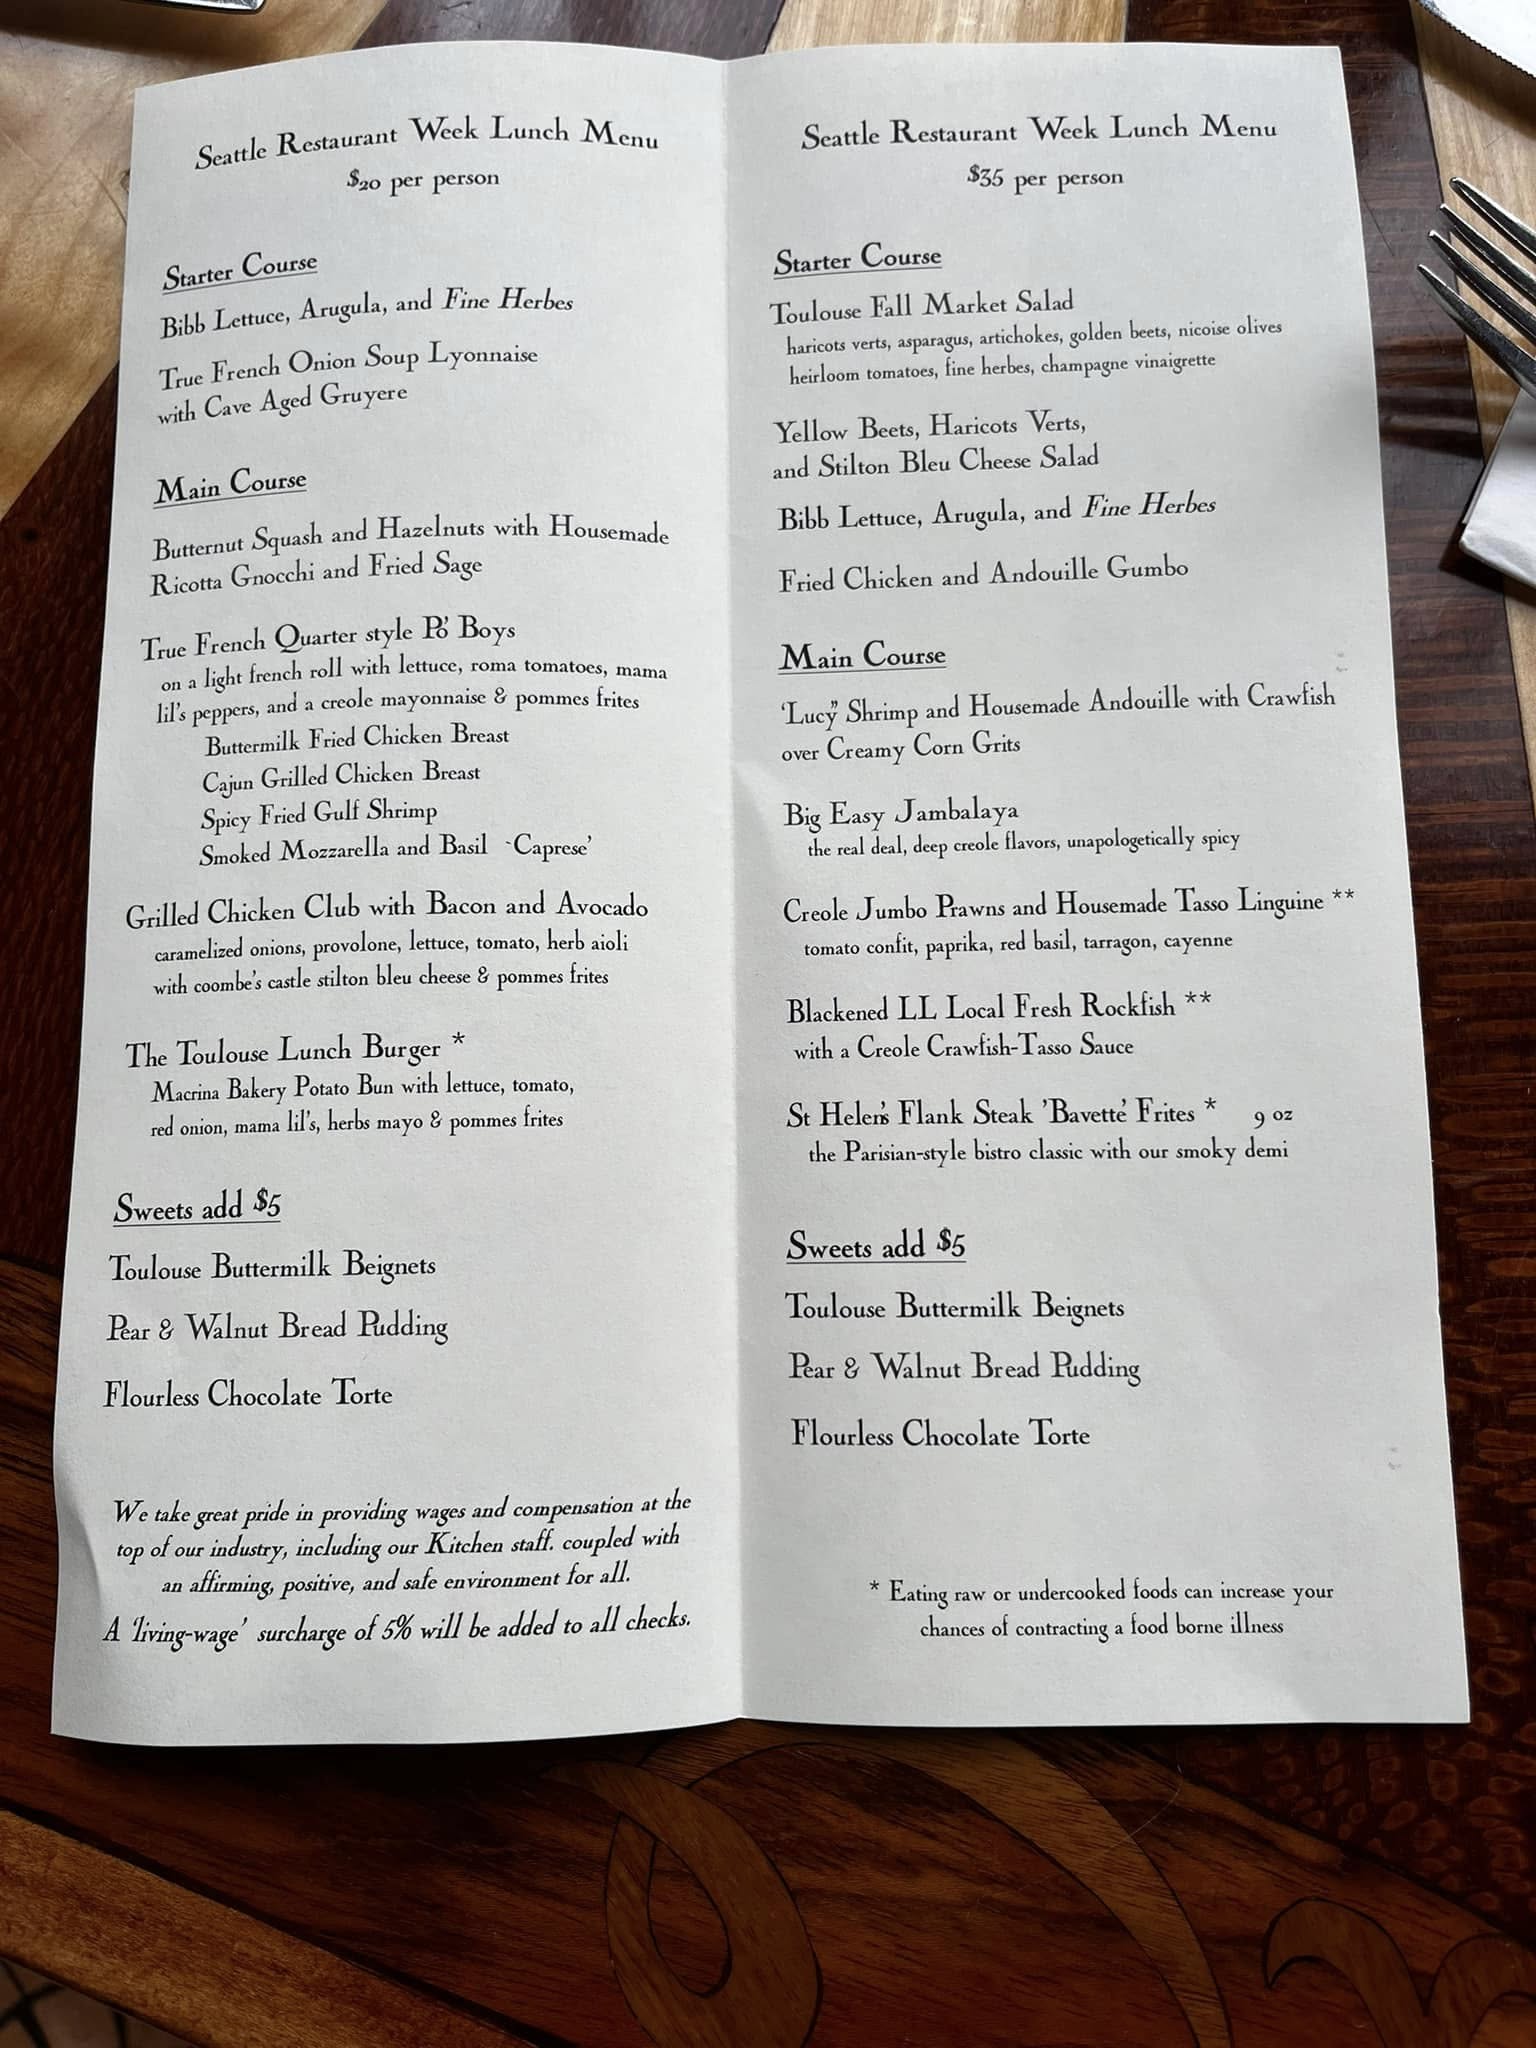 Seattle Restaurant Week Lunch Menu
$20 per person
Starter Course
Bibb Lettuce, Arugula, and Fine Herbes
True French Onion Soup Lyonnaise
with Cave Aged Gruyere
Main Course
Butternut Squash and Hazelnuts with Housemade
Ricotta Gnocchi and Fried Sage
True French Quarter style Po' Boys
on a light french roll with lettuce, roma tomatoes, mama
lil's peppers, and a creole mayonnaise & pommes frites
Buttermilk Fried Chicken Breast
Cajun Grilled Chicken Breast
Spicy Fried Gulf Shrimp
Smoked Mozzarella and Basil `Caprese'
Grilled Chicken Club with Bacon and Avocado
caramelized onions, provolone, lettuce, tomato, herb aioli
with coombe's castle stilton bleu cheese & pommes frites
The Toulouse Lunch Burger *
Macrina Bakery Potato Bun with lettuce, tomato,
red onion, mama lil's, herbs mayo & pommes frites
Sweets add $5
Toulouse Buttermilk Beignets
Pear & Walnut Bread Pudding
Flourless Chocolate Torte
We take great pride in providing wages and compensation at the
top of our industry, including our Kitchen staff. coupled with
an affirming, positive, and safe environment for all.
A 'living-wage' surcharge of 5% will be added to all checks.
Seattle Restaurant Week Lunch Menu
$35 per person
Starter Course
Toulouse Fall Market Salad
haricots verts, asparagus, artichokes, golden beets, nicoise olives
heirloom tomatoes, fine herbes, champagne vinaigrette
Yellow Beets, Haricots Verts,
and Stilton Bleu Cheese Salad
Bibb Lettuce, Arugula, and Fine Herbes
Fried Chicken and Andouille Gumbo
Main Course
'Lucy" Shrimp and Housemade Andouille with Crawfish
over Creamy Corn Grits
Big Easy Jambalaya
the real deal, deep creole flavors, unapologetically spicy
Creole Jumbo Prawns and Housemade Tasso Linguine **
tomato confit, paprika, red basil, tarragon, cayenne
Blackened LL Local Fresh Rockfish **
with a Creole Crawfish-Tasso Sauce
St Helen's Flank Steak 'Bavette' Frites * 9 oz
the Parisian-style bistro classic with our smoky demi
Sweets add $5
Toulouse Buttermilk Beignets
Pear & Walnut Bread Pudding
Flourless Chocolate Torte
* Eating raw or undercooked foods can increase your
chances of contracting a food borne illness